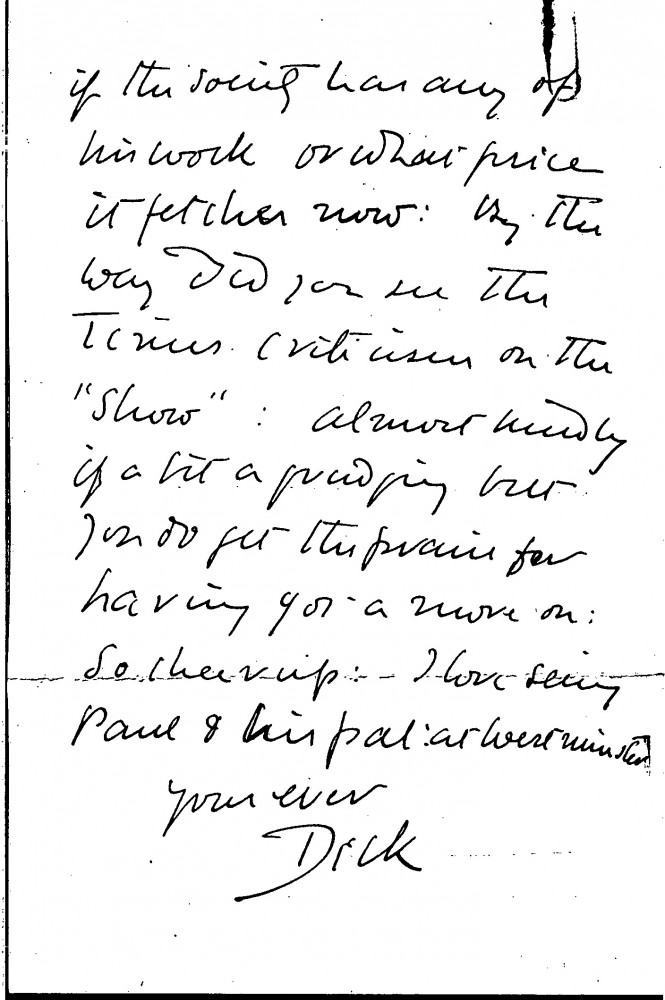 if the Society has any of
his work or what price
it fetches now: By the
way Did you see the
Times criticism on the
"Show": almost kindly
if a bit a grudging but
you do get the praise for
having got a move on:
So cheer up:- I love seeing
Paul & his pal: at Westminster
your ever
Dick